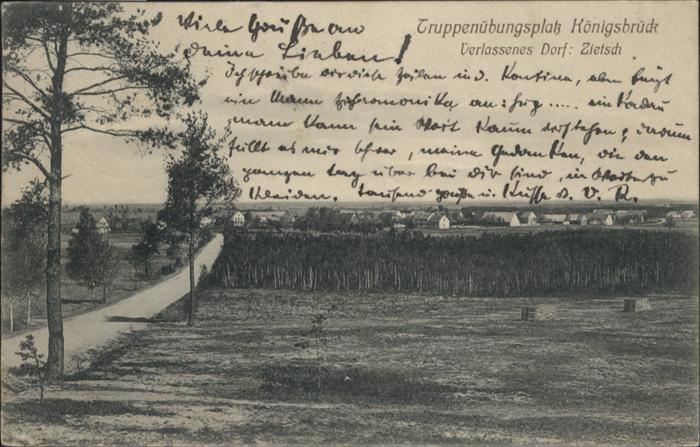 Truppenübungsplatz Königsbrück
Verlassenes Dorf: Zietsch
Viele Grüße an
deine Lieben!
Ich schreibe dir diese Zeilen in d. Kantine, eben fängt
ein Mann Ziehrmonika an: zug ..... ein Kadau
man kann sein Wort kaum verstehen; darum
fällt es mir schwer, meine Gedanken, die den
ganzen Tag über bei dir sind, in Worte zu
kleiden. Tausend Grüße u. Küsse d. V. R.